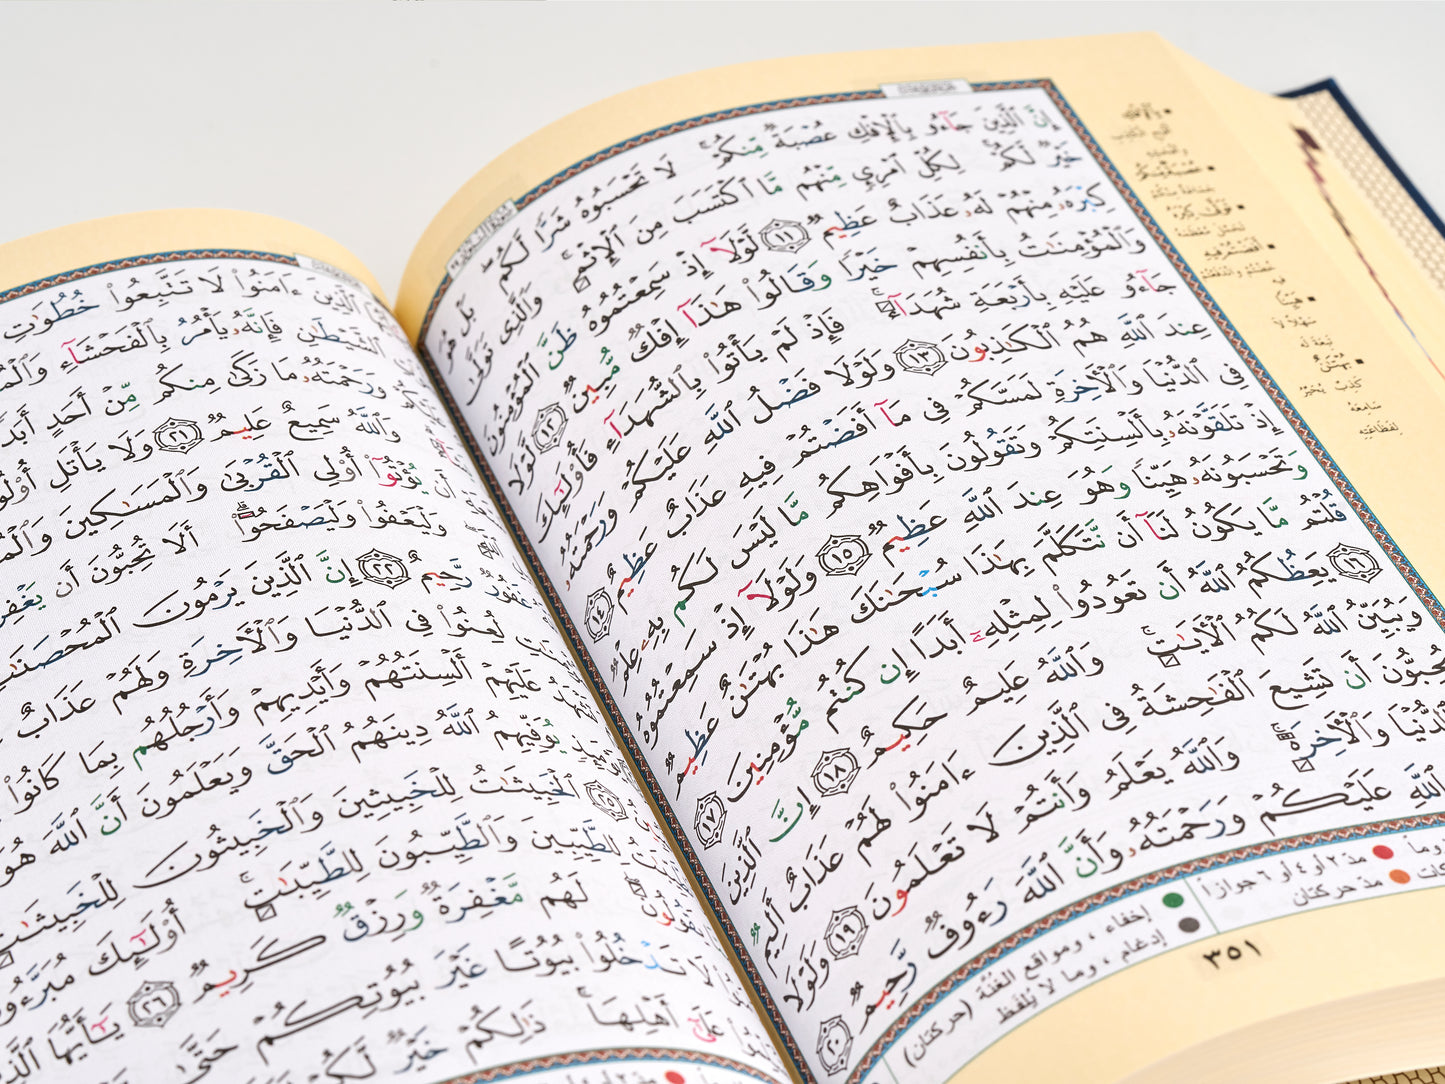 إِنَّ ٱلَّذِينَ جَآءُو بِٱلْإِفْكِ عُصْبَةٌ مِّنكُمْ ۚ لَا تَحْسَبُوهُ شَرًّا لَّكُم ۖ بَلْ هُوَ
خَيْرٌ لَّكُمْ ۚ لِكُلِّ ٱمْرِئٍ مِّنْهُم مَّا ٱكْتَسَبَ مِنَ ٱلْإِثْمِ ۚ وَٱلَّذِى تَوَلَّىٰ
كِبْرَهُۥ مِنْهُمْ لَهُۥ عَذَابٌ عَظِيمٌ ١١ لَّوْلَآ إِذْ سَمِعْتُمُوهُ ظَنَّ ٱلْمُؤْمِنُونَ
وَٱلْمُؤْمِنَٰتُ بِأَنفُسِهِمْ خَيْرًا وَقَالُوا۟ هَٰذَآ إِفْكٌ مُّبِينٌ ١٢ لَّوْلَا
جَآءُو عَلَيْهِ بِأَرْبَعَةِ شُهَدَآءَ ۚ فَإِذْ لَمْ يَأْتُوا۟ بِٱلشُّهَدَآءِ فَأُو۟لَٰٓئِكَ
عِندَ ٱللَّهِ هُمُ ٱلْكَٰذِبُونَ ١٣ وَلَوْلَا فَضْلُ ٱللَّهِ عَلَيْكُمْ وَرَحْمَتُهُۥ
فِى ٱلدُّنْيَا وَٱلْءَاخِرَةِ لَمَسَّكُمْ فِى مَآ أَفَضْتُمْ فِيهِ عَذَابٌ عَظِيمٌ ١٤
إِذْ تَلَقَّوْنَهُۥ بِأَلْسِنَتِكُمْ وَتَقُولُونَ بِأَفْوَاهِكُم مَّا لَيْسَ لَكُم بِهِۦ عِلْمٌ
وَتَحْسَبُونَهُۥ هَيِّنًا وَهُوَ عِندَ ٱللَّهِ عَظِيمٌ ١٥ وَلَوْلَآ إِذْ سَمِعْتُمُوهُ
قُلْتُم مَّا يَكُونُ لَنَآ أَن نَّتَكَلَّمَ بِهَٰذَا سُبْحَٰنَكَ هَٰذَا بُهْتَٰنٌ عَظِيمٌ
١٦ يَعِظُكُمُ ٱللَّهُ أَن تَعُودُوا۟ لِمِثْلِهِۦٓ أَبَدًا إِن كُنتُم مُّؤْمِنِينَ ١٧
وَيُبَيِّنُ ٱللَّهُ لَكُمُ ٱلْءَايَٰتِ ۚ وَٱللَّهُ عَلِيمٌ حَكِيمٌ ١٨ إِنَّ ٱلَّذِينَ
يُحِبُّونَ أَن تَشِيعَ ٱلْفَٰحِشَةُ فِى ٱلَّذِينَ ءَامَنُوا۟ لَهُمْ عَذَابٌ أَلِيمٌ
ٱلدُّنْيَا وَٱلْءَاخِرَةِ ۚ وَٱللَّهُ يَعْلَمُ وَأَنتُمْ لَا تَعْلَمُونَ ١٩ وَلَوْلَا
ٱللَّهِ عَلَيْكُمْ وَرَحْمَتُهُۥ وَأَنَّ ٱللَّهَ رَءُوفٌ رَّحِيمٌ ٢٠
مد ٢ أو ٤ أو ٦ جوازاً
مد حركتان
إخفاء ، ومواقع الغُنَّة (حركتان)
إدغام ، وما لا يُلفظ
٣٥١
بِٱلْإِفْكِ
هَيِّنًا
ٱلَّذِينَ ءَامَنُوا۟ لَا تَتَّبِعُوا۟ خُطُوَٰتِ
ٱلشَّيْطَٰنِ فَإِنَّهُۥ يَأْمُرُ بِٱلْفَحْشَآءِ
وَرَحْمَتُهُۥ مَا زَكَىٰ مِنكُم مِّنْ أَحَدٍ
وَٱللَّهُ سَمِيعٌ عَلِيمٌ ٢١ وَلَا يَأْتَلِ
أَن يُؤْتُوٓا۟ أُو۟لِى ٱلْقُرْبَىٰ وَٱلْمَسَٰكِينَ
وَلْيَعْفُوا۟ وَلْيَصْفَحُوٓا۟ ۗ أَلَا تُحِبُّونَ أَن
غَفُورٌ رَّحِيمٌ ٢٢ إِنَّ ٱلَّذِينَ يَرْمُونَ
لُعِنُوا۟ فِى ٱلدُّنْيَا وَٱلْءَاخِرَةِ وَلَهُمْ عَذَابٌ
تَشْهَدُ عَلَيْهِمْ أَلْسِنَتُهُمْ وَأَيْدِيهِمْ وَأَرْجُلُهُم بِمَا كَانُوا۟
يُوَفِّيهِمُ ٱللَّهُ دِينَهُمُ ٱلْحَقَّ وَيَعْلَمُونَ أَنَّ ٱللَّهَ هُوَ
٢٥ ٱلْخَبِيثَٰتُ لِلْخَبِيثِينَ وَٱلْخَبِيثُونَ لِلْخَبِيثَٰتِ
لِلطَّيِّبِينَ وَٱلطَّيِّبُونَ لِلطَّيِّبَٰتِ ۚ أُو۟لَٰٓئِكَ
يَقُولُونَ ۖ لَهُم مَّغْفِرَةٌ وَرِزْقٌ كَرِيمٌ ٢٦ يَٰٓأَيُّهَا
لَا تَدْخُلُوا۟ بُيُوتًا غَيْرَ بُيُوتِكُمْ حَتَّىٰ
عَلَىٰٓ أَهْلِهَا ۚ ذَٰلِكُمْ خَيْرٌ لَّكُمْ